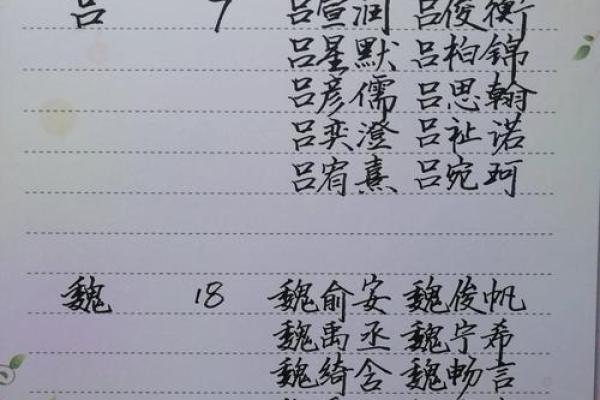 吕 7 吕宣润 吕俊衡
吕星默 吕柏锦
吕彦儒 吕思翰
吕奕澄 吕祉诺
吕宥熹 吕宛珂
魏 18 魏俞安 魏俊帆
魏禹丞 魏宁希
魏绮含 魏畅言